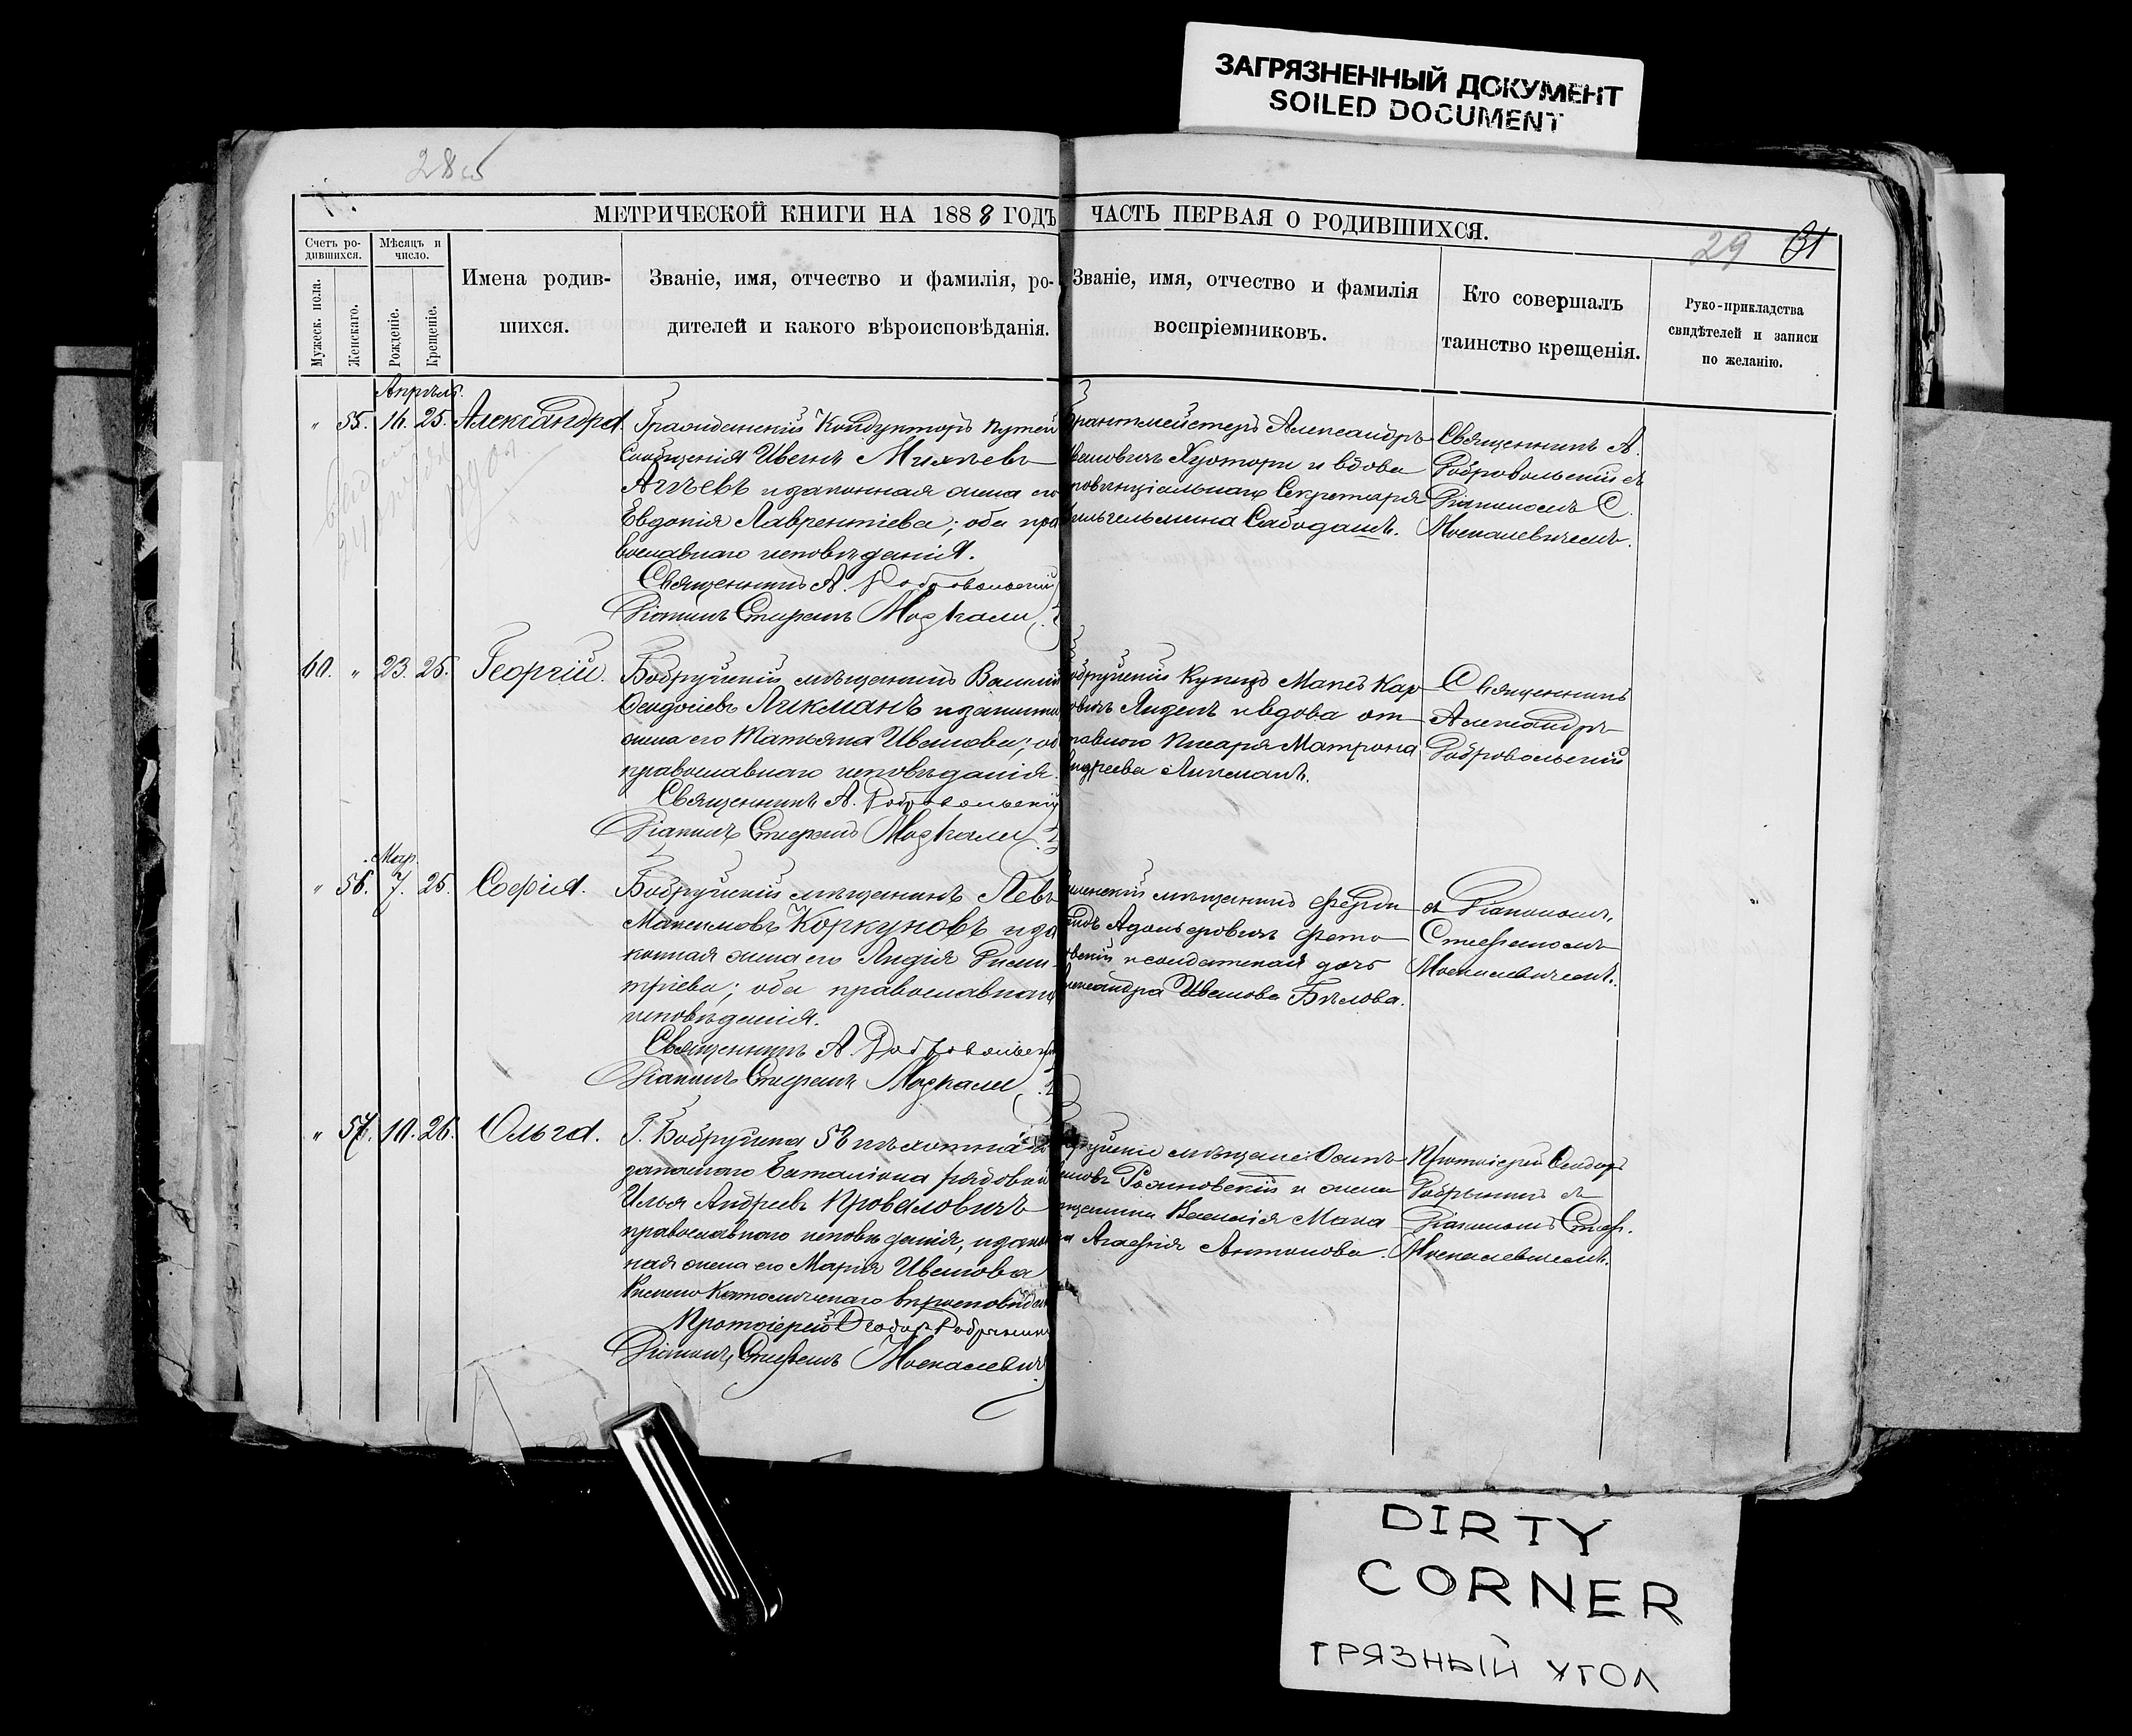 ЗАГРЯЗНЕННЫЙ ДОКУМЕНТ
SOILED DOCUMENT
28
МЕТРИЧЕСКОЙ КНИГИ НА 1888 ГОДЪ
ЧАСТЬ ПЕРВАЯ О РОДИВШИХСЯ.
29 31
Счетъ ро-
дившихся.
Мужеск. пола.
Женскаго.
Мѣсяцъ и
число.
Рожденіе.
Крещеніе.
Имена родив-
шихся.
Званіе, имя, отчество и фамилія, ро-
дителей и какого вѣроисповѣданія.
Званіе, имя, отчество и фамилія
воспріемниковъ.
Кто совершалъ
таинство крещенія.
Руко-прикладства
свидѣтелей и записи
по желанію.
Апрѣль.
" 55. 16. 25. Александра
Гражданскій Кондукторъ путей
сообщенія Иванъ
и законная жена его
Евдокія Лаврентіева; оба пра
вославнаго исповѣданія.
Священникъ А. Добровольскій
Діаконъ Стефанъ
Брантмейстеръ Александръ
и вдова
Секретаря
Священникъ А.
Добровольскій съ
Діакономъ С.
Москалевичемъ.
60. " 23. 25. Георгій.
Бобруйскій мѣщанинъ Василій
Ѳеодосіевъ Ликманъ и законная
жена его Татьяна Иванова; об
православнаго исповѣданія.
Священникъ А. Добровольскій
Діаконъ Стефанъ
Купецъ Маркъ Кар
и вдова от
писаря Матрона
Андреева Ликманъ.
Священникъ
Александръ
Добровольскій
Мар.
" 56. 7. 25. Софія.
Бобруйскій мѣщанинъ Левъ
Максимовъ Коркуновъ и за
конная жена его Лидія Дими-
тріева; оба православнаго
исповѣданія.
Священникъ А. Добровольскій
Діаконъ Стефанъ
мѣщанинъ Ферди
Адольфовичъ
и солдатская дочь
Александра Иванова Бѣлова.
съ Діакономъ
Стефаномъ
Москалевичемъ.
" 57. 10. 26. Ольга.
Г. Бобруйска 58 пѣхотна
запаснаго Баталіона рядовой
Илья Андреевъ Проваловичъ
православнаго исповѣданія, и закон
ная жена его Марія Иванова
Римско Католическаго вѣроисповѣдан
Протоіерей
Діаконъ Стефанъ Москалевичъ
мѣщане: Осипъ
и жена
Василія Мака
Агафія Антонова.
Протоіерей Ѳеодоръ
съ
Діакономъ Стеф.
Москалевичемъ.
DIRTY
CORNER
ГРЯЗНЫЙ УГОЛ